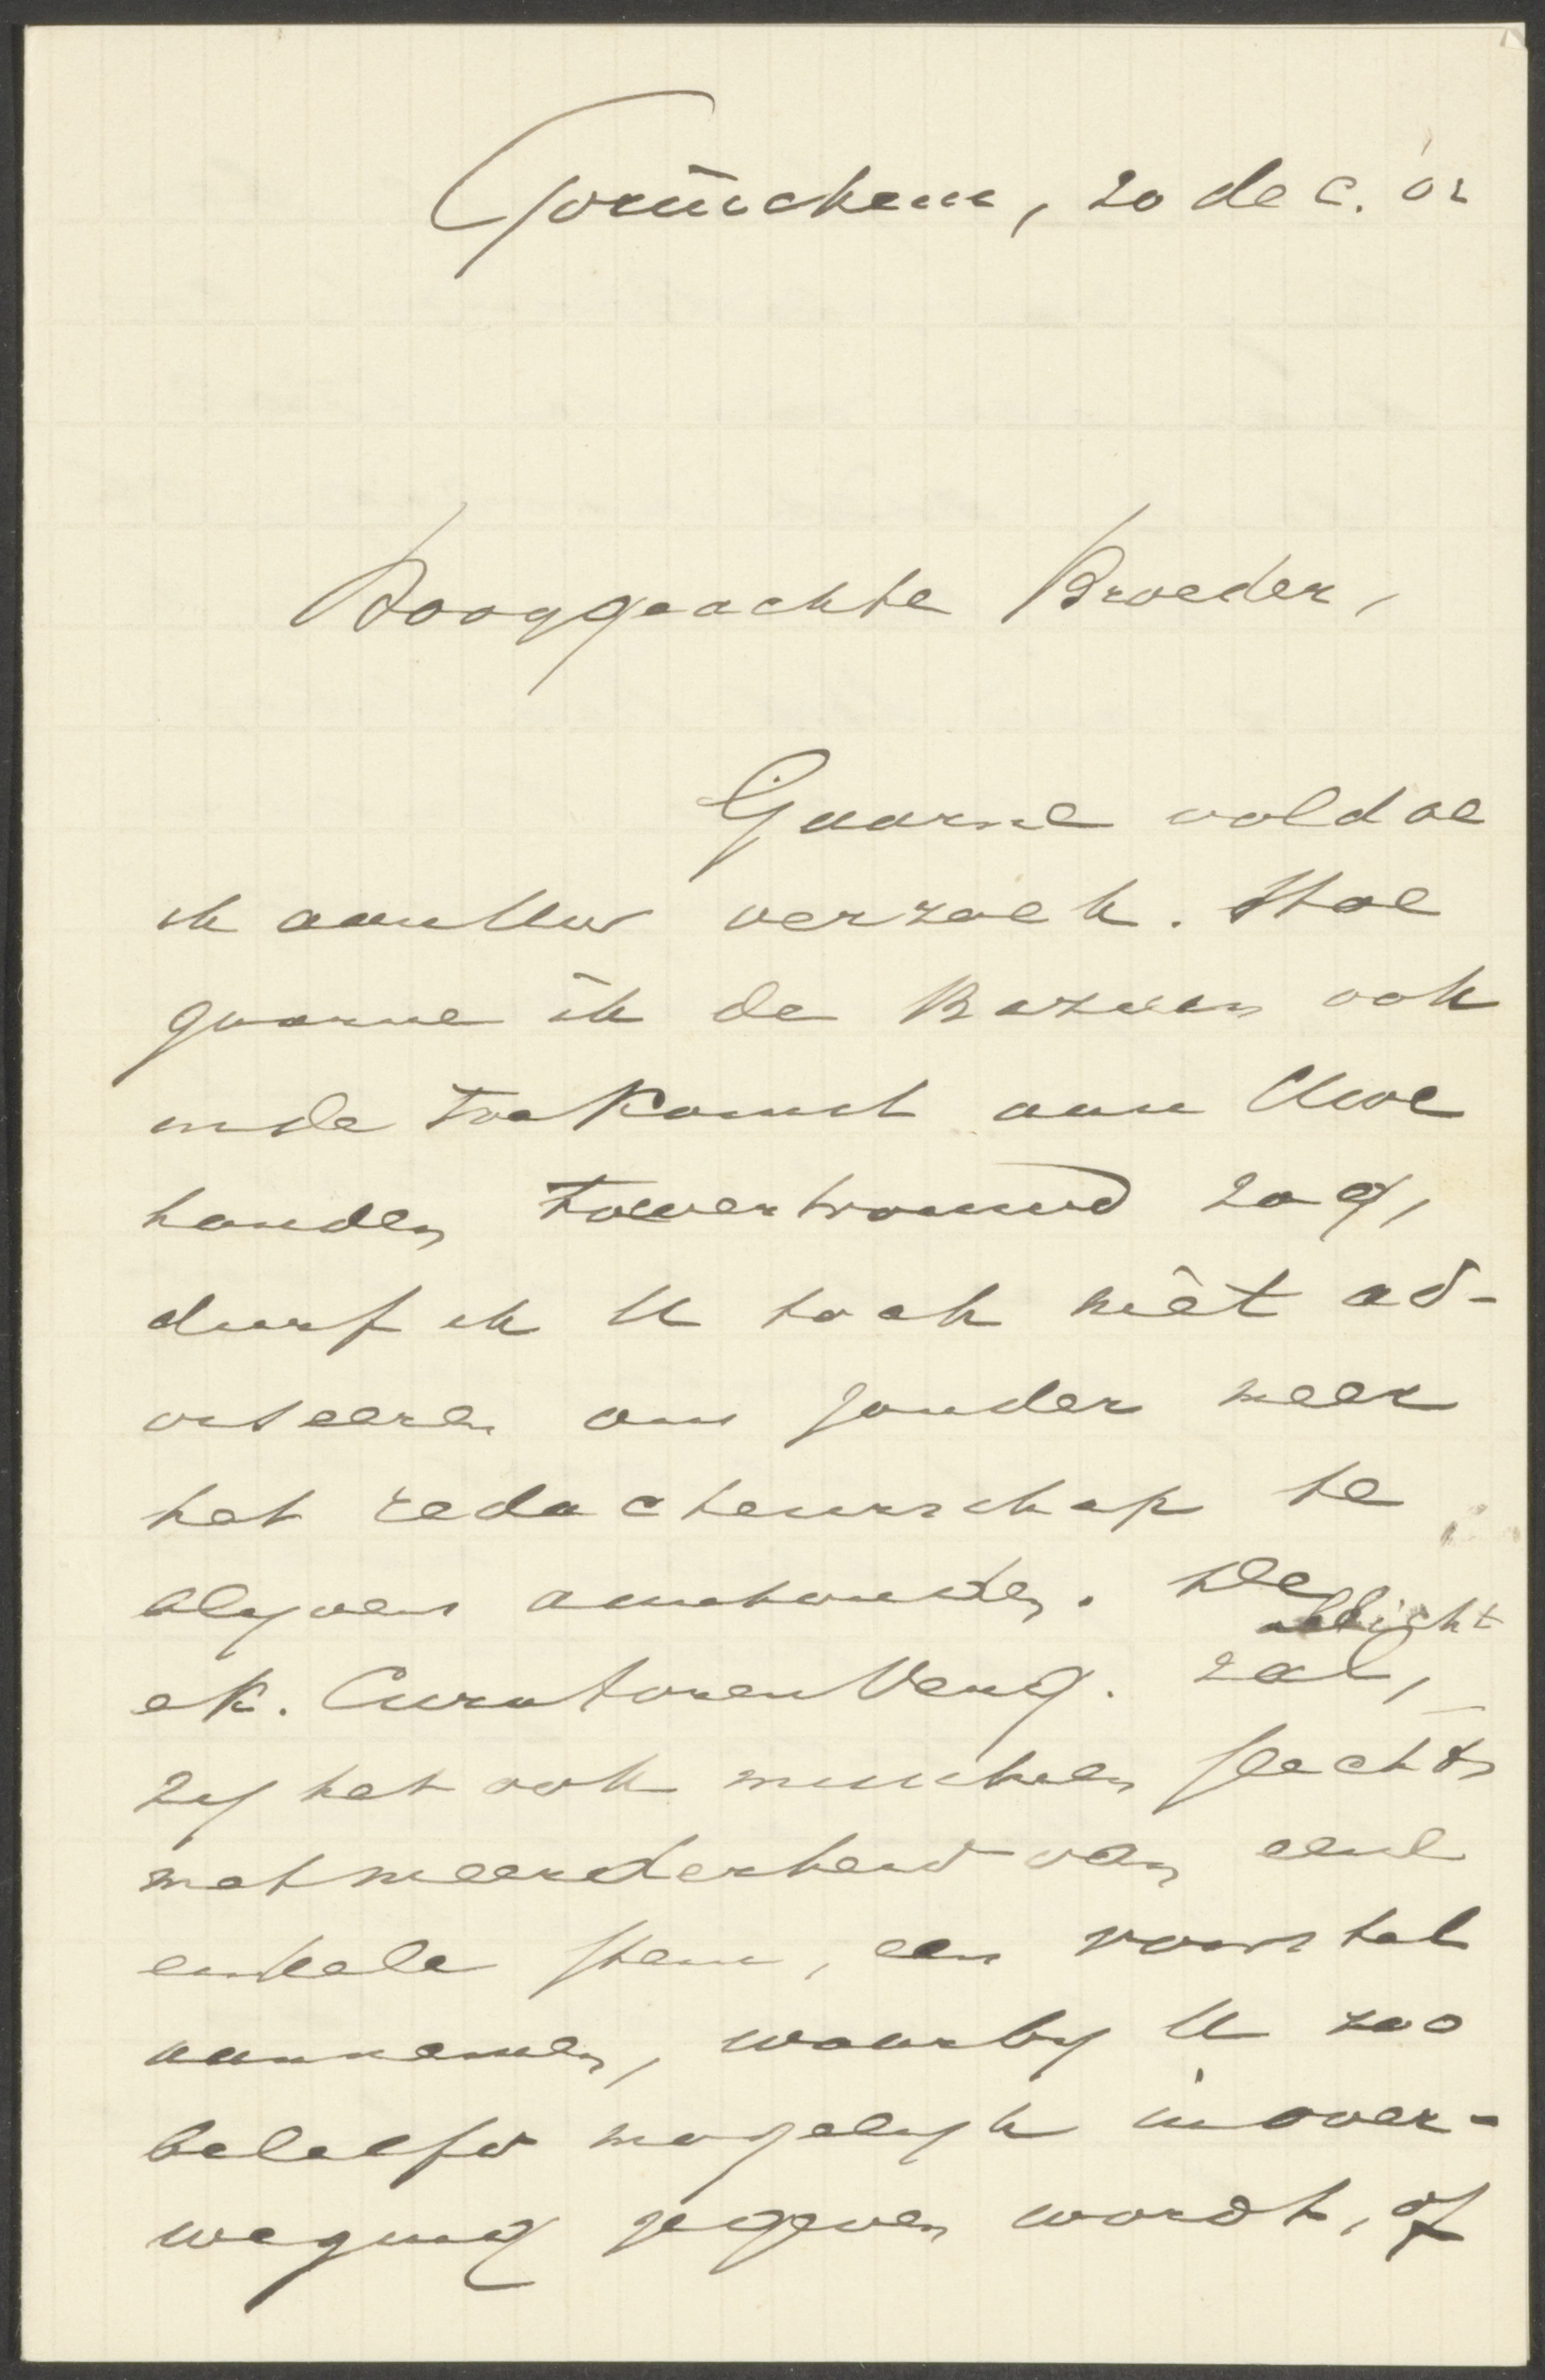 Gorinchem, 20 dec. '02
Hooggeachte Broeder,
Gaarne voldoe
ik aan Uw verzoek. Hoe
gaarne ik de Bazuin ook
in de toekomst aan Uwe
handen toevertrouwd zag,
durf ik U toch niet ad-
viseeren om zonder meer
het redacteurschap te
blijven aanhouden. De
ek. Curatoren Verg. zal, wellicht
zij het ook misschien slechts
met meerderheid van eene
enkele stem, een voorstel
aannemen, waarbij U zoo
beleefd mogelijk in over-
weging gegeven wordt, of